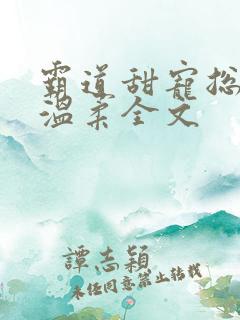 霸道甜寵總
溫柔全文
譚志穎
未經同意禁止轉載